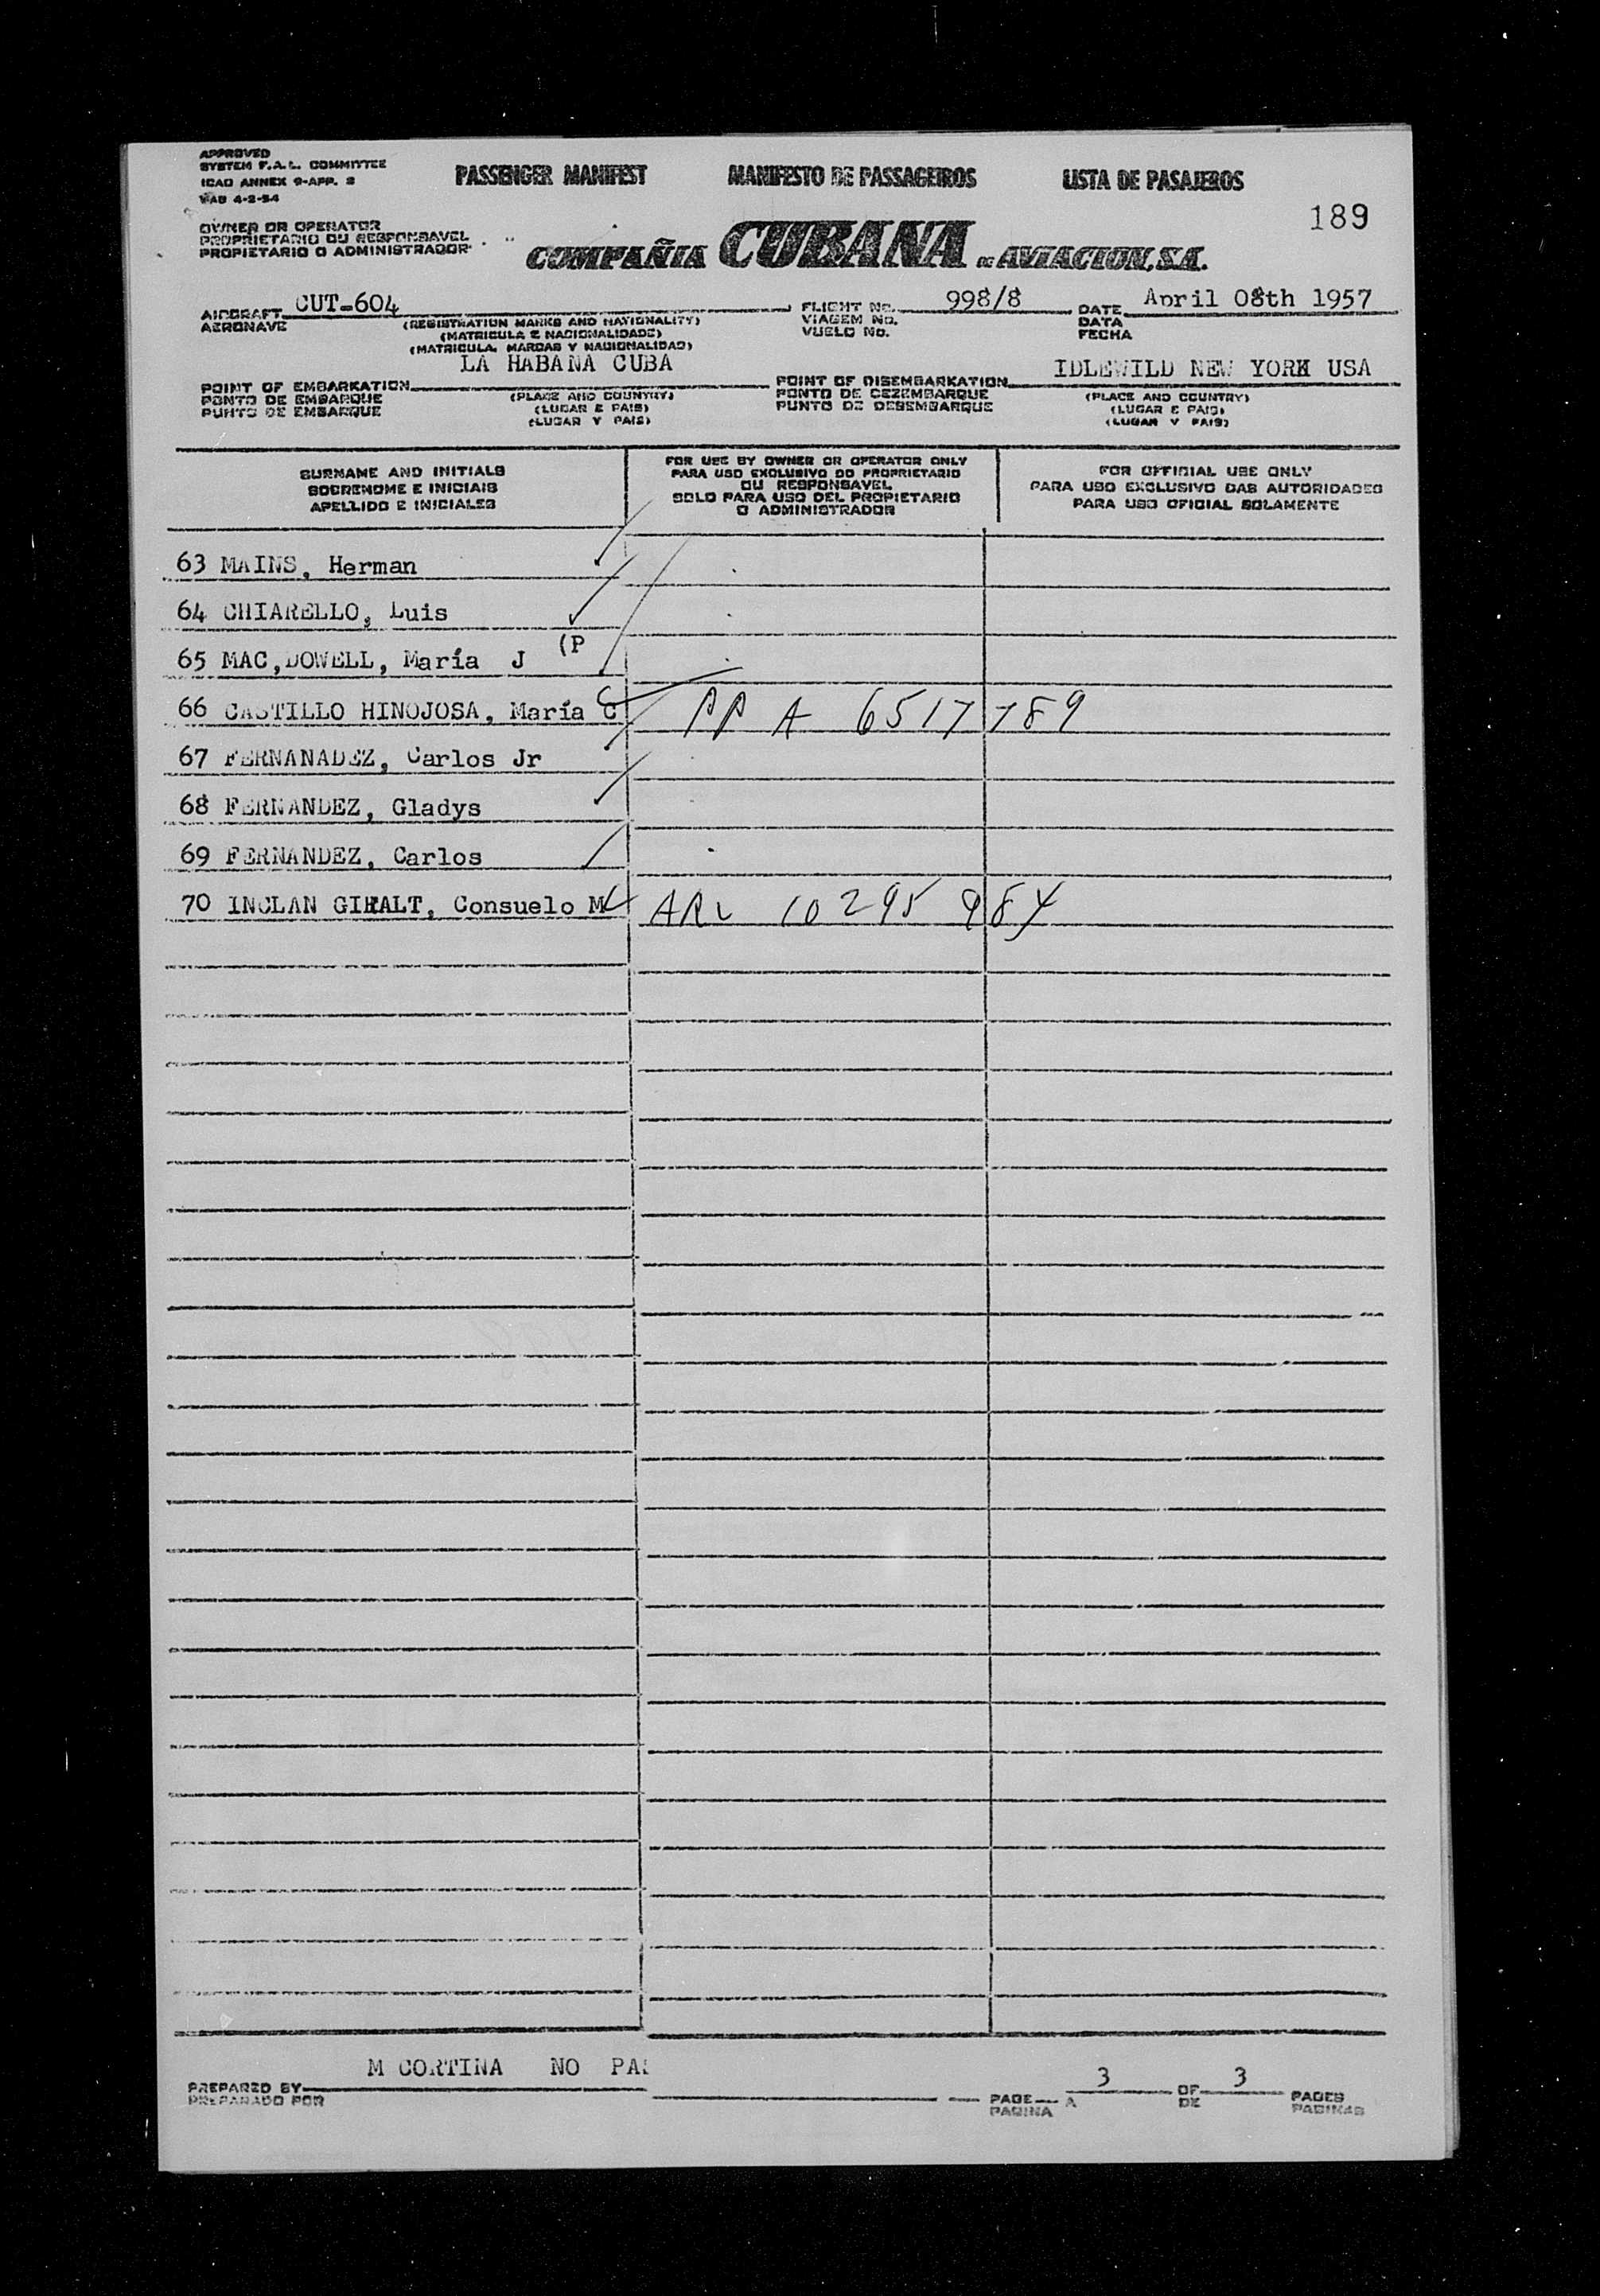 APPROVED
SYSTEM F.A.L. COMMITTEE
ICAO ANNEX 9-APP. 2
4-2-54
PASSENGER MANIFEST MANIFESTO DE PASSAGEIROS LISTA DE PASAJEROS
189
OWNER OR OPERATOR
PROPRIETARIO OU RESPONSAVEL
PROPIETARIO O ADMINISTRADOR
COMPAÑIA CUBANA DE AVIACION, S.A.
AIRCRAFT CUT-604 FLIGHT No. 998/8 DATE April 08th 1957
AERONAVE (REGISTRATION MARKS AND NATIONALITY) VIAGEM No. DATA
(MATRICULA E NACIONALIDADE) VUELO No. FECHA
(MATRICULA, MARCAS Y NACIONALIDAD)
LA HABANA CUBA IDLEWILD NEW YORK USA
POINT OF EMBARKATION POINT OF DISEMBARKATION
PONTO DE EMBARQUE (PLACE AND COUNTRY) PONTO DE DEZEMBARQUE (PLACE AND COUNTRY)
PUNTO DE EMBARQUE (LUGAR E PAIS) PUNTO DE DESEMBARQUE (LUGAR E PAIS)
(LUGAR Y PAIS) (LUGAR Y PAIS)
SURNAME AND INITIALS
SOBRENOME E INICIAIS
APELLIDO E INICIALES
FOR USE BY OWNER OR OPERATOR ONLY
PARA USO EXCLUSIVO DO PROPRIETARIO
OU RESPONSAVEL
SOLO PARA USO DEL PROPIETARIO
O ADMINISTRADOR
FOR OFFICIAL USE ONLY
PARA USO EXCLUSIVO DAS AUTORIDADES
PARA USO OFICIAL SOLAMENTE
63 MAINS, Herman
64 CHIARELLO, Luis
65 MAC,DOWELL, María J (P
66 CASTILLO HINOJOSA, María C PP A 6517789
67 FERNANADEZ, Carlos Jr
68 FERNANDEZ, Gladys
69 FERNANDEZ, Carlos
70 INCLAN GIRALT, Consuelo M 10295984
M CORTINA NO PA
PREPARED BY
PREPARADO POR
PAGE 3 OF 3 PAGES
PAGINA A DE PAGINAS